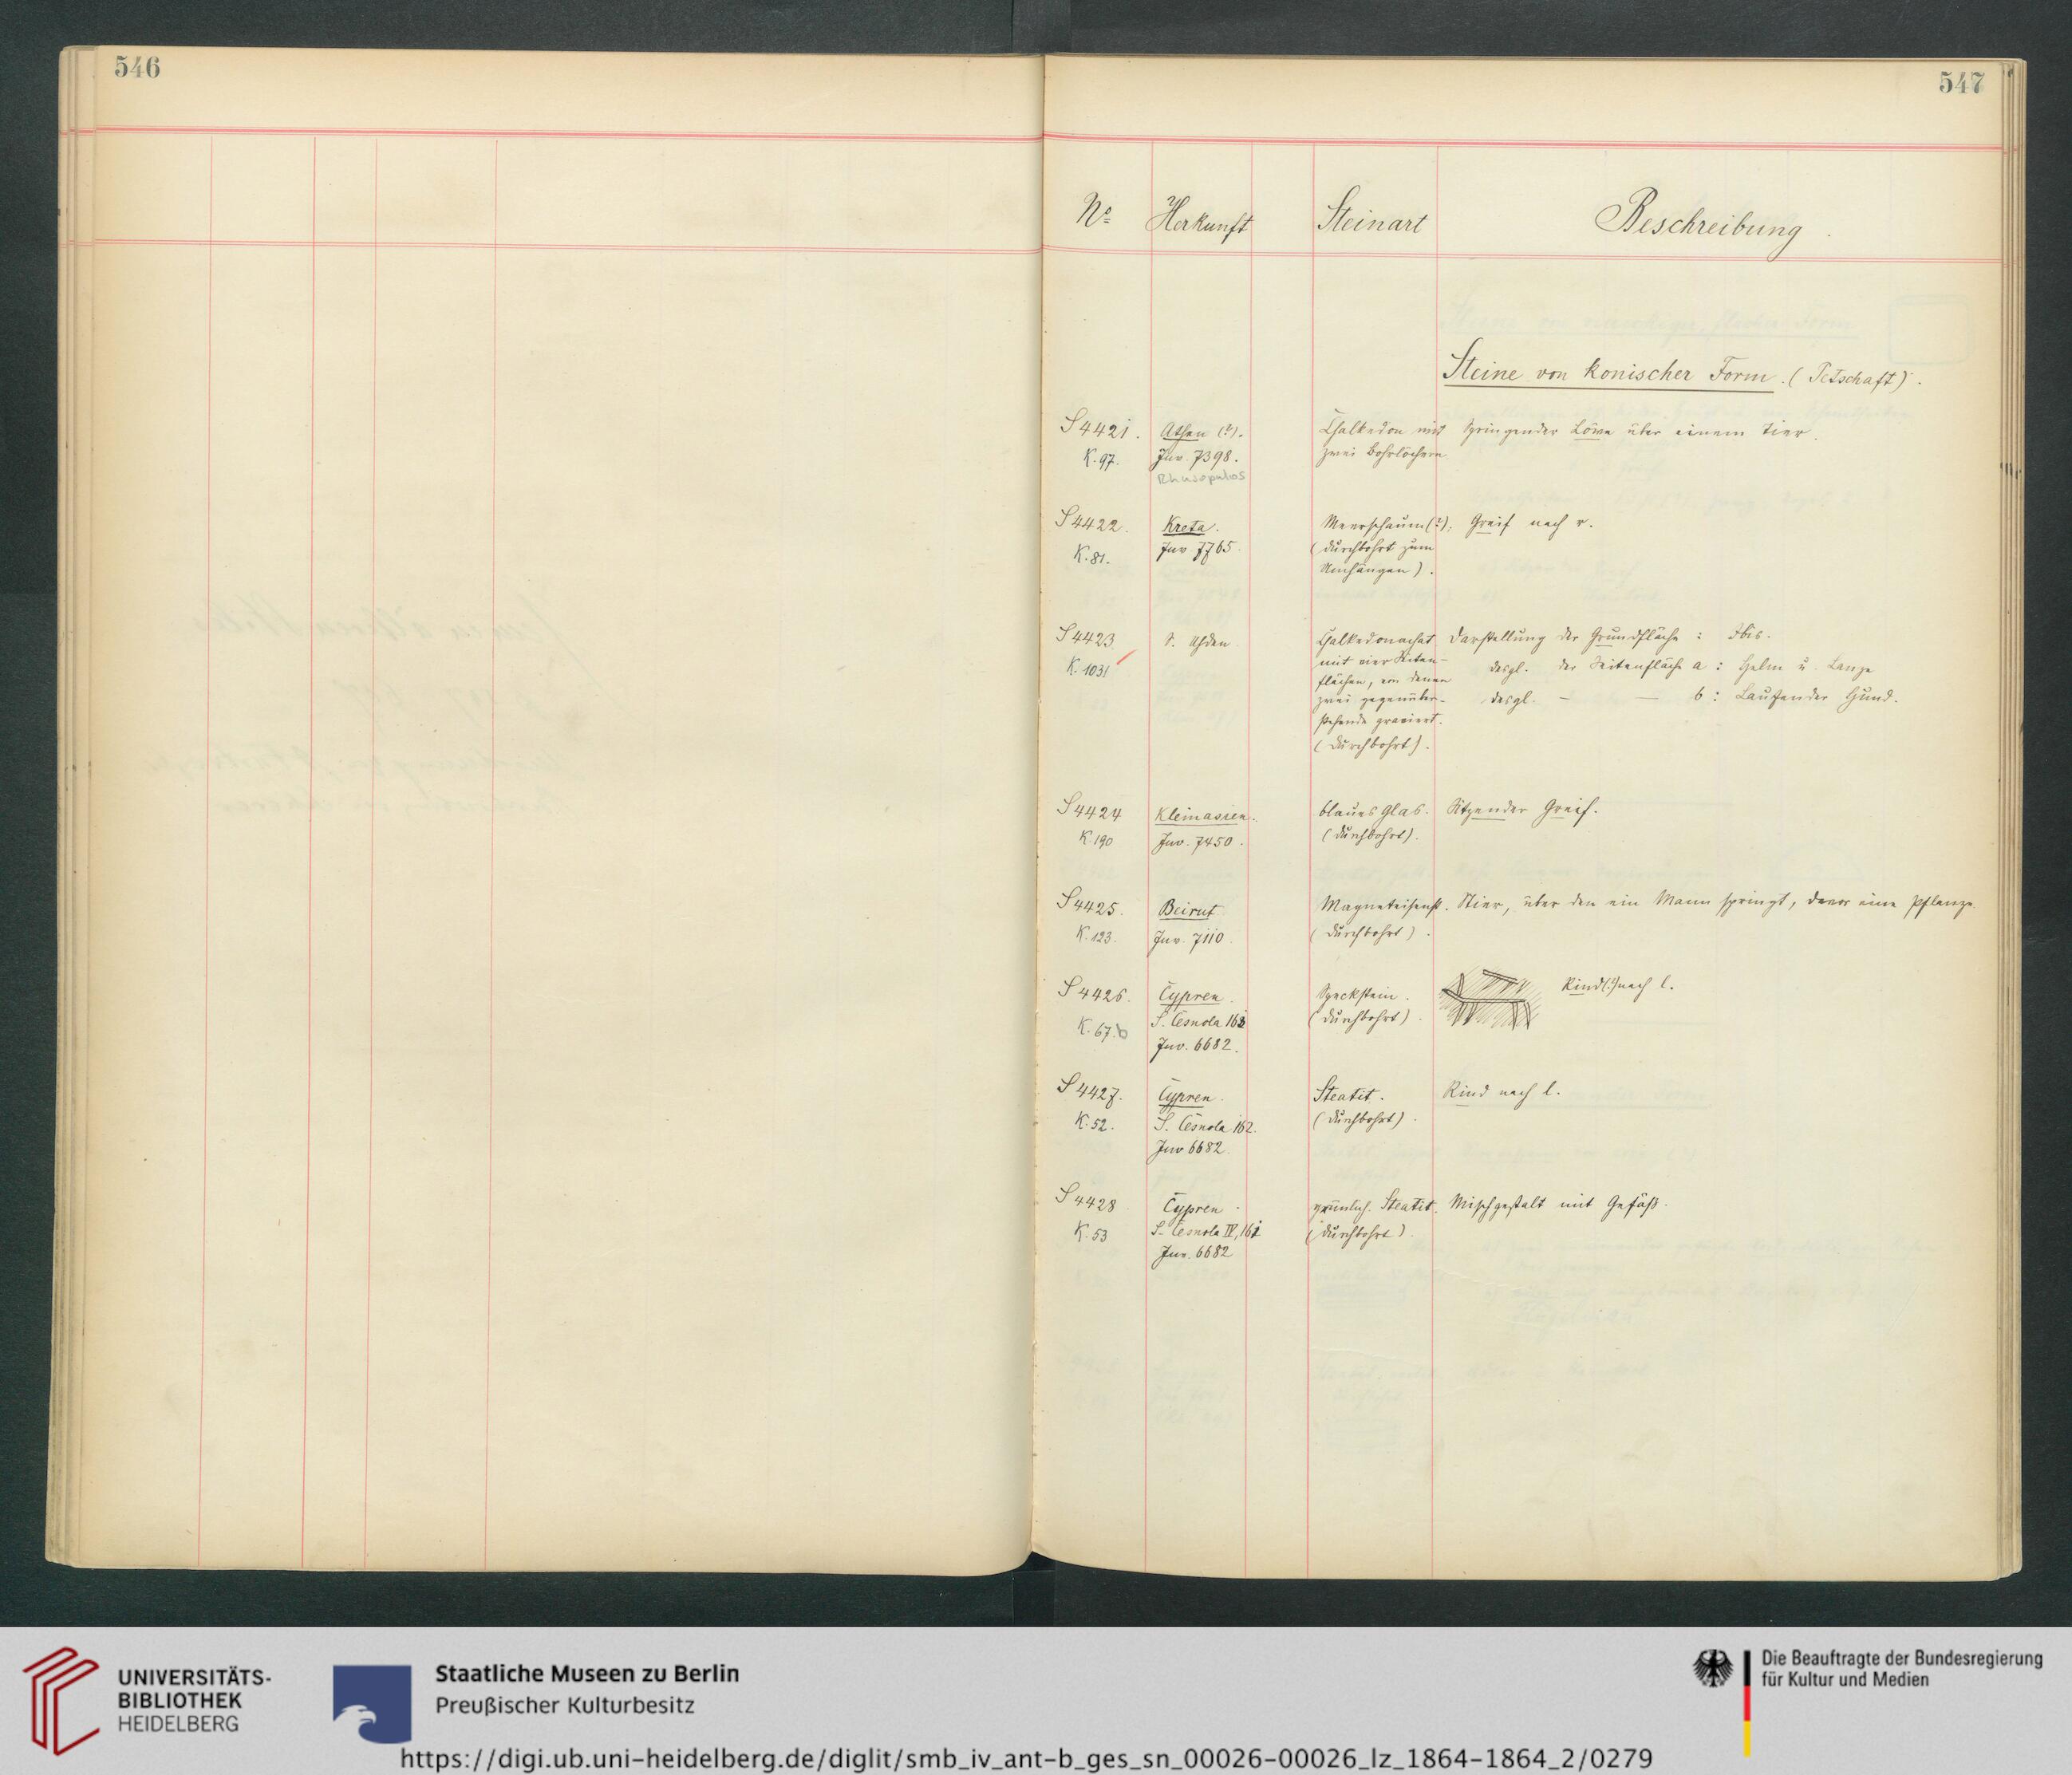 546
547
No Herkunft Steinart Beschreibung.
Steine von konischer Form. (Petschaft).
S 4421. Athen (?). Chalkedon mit Springender Löwe über einem Tier.
K. 97. Inv. 7398. zwei Bohrlöchern
Rhusopulos
S 4422. Kreta. Meerschaum (?), Greif nach r.
K. 81. Inv. 7765. (durchbohrt zum
Umhängen).
S 4423. S. Uhden Chalkedonachat Darstellung der Grundfläche: Ibis.
K. 1031 mit vier Seiten- desgl. der Seitenfläche a: Helm u. Lanze
flächen, von denen
zwei gegenüber- desgl. — — b: Laufender Hund.
stehende graviert.
(durchbohrt).
S 4424 Kleinasien. blaues Glas. Sitzender Greif.
K. 190 Inv. 7450. (durchbohrt).
S 4425. Beirut Magneteisenst. Stier, über den ein Mann springt, davor eine Pflanze
K. 123. Inv. 7110. (durchbohrt).
S 4426. Cypren. Speckstein. Rind(?) nach l.
K. 67.b S. Cesnola (durchbohrt).
Inv. 6682.
S 4427. Cypren. Steatit. Rind nach l.
K. 52. S. Cesnola 162. (durchbohrt).
Inv 6682.
S 4428 Cypren. grünlich. Steatit. Mischgestalt mit Gefäß.
K. 53 S. Cesnola IV, 161 (durchbohrt).
Inv. 6682
UNIVERSITÄTS-
BIBLIOTHEK
HEIDELBERG
Staatliche Museen zu Berlin
Preußischer Kulturbesitz
Die Beauftragte der Bundesregierung
für Kultur und Medien
https://digi.ub.uni-heidelberg.de/diglit/smb_iv_ant-b_ges_sn_00026-00026_lz_1864-1864_2/0279